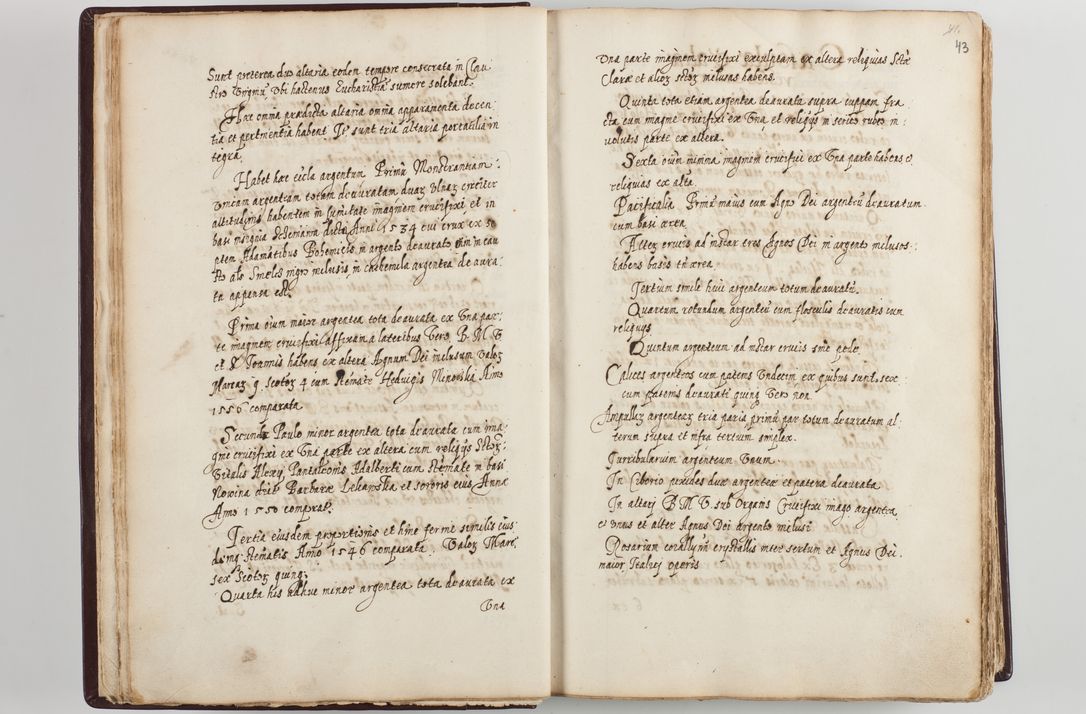 Sunt preterea duo altaria eodem tempore consecrata in Clau
stro Virginū, Vbi hactenus Eucharistiā sumere solebant.
Hæc omnia prædicta altaria omnia apparamenta decen
tia et pertinentia habent. Itē sunt tria altaria portatilia in
tegra.
Habet hæc ec̄cla argentum Primū Monstrantiam
Vnicam argenteam totam deauratam duaz Vlnaz circiter
altitudinis habentem in sumitate imaginem crucifixi et in
basi insignia Anni 1534 cui crux ex
ptem Adamātibus Bohemicis in argento deaurato
sto als Smelcs nigro inclusis in cathenula argentea deaura
ta appensa est.
Prima oium maior argentea tota deaurata ex Vna par
te imaginem crucifixi affixam a lateribus Vero B. M. V.
et S. Joannis habens ex altera Agnum Dei inclusum Valoz
Marcaz 9. Scotoz 4 cum Stemate Hedvigis Minowska Anno
1556 comparata
Secunda Paulo minor argentea tota deaurata cum ima
gine crucifixi ex Vna parte ex altera cum reliquijs Sctoz
Vitalis Alexij Pantaleonis Adalberti cum Stemate in basi
Nowina dict. Barbaræ Lekawska et sororis eius Annæ
Anno 1550 comparat.
Tertia eiusdem proportionis et hinc ferme similis eius
demq stematis Anno 1546 comparata. Valoz Marc.
sex Scotoz quinq;
Quarta his adhuc minor argentea tota deaurata ex
Vna
41.
43
Vna parte imaginem crucifixi exculptam ex altera reliquias Sctæ
Claræ et alioz sctoz inclusas habens.
Quinta tota etiam argentea deaurata supra cuppam fra
cta cum imagine crucifixi ex Vna et reliquijs in serico rubeo in
uolutis parte ex altera.
Sexta oium minima imaginem crucifixi ex Vna parte habens et
reliquias ex alta.
Pacificalia Primū maius cum Agno Dei argenteū deauratum
cum basi ærea.
Altez crucis ad instar tres Agnos Dei in argento inclusos
habens basis tn̄ ærea
Tertium simile huic argenteum totum deauratū.
Quartum rotundum argenteū cum flosculis deauratis cum
reliquijs
Quintum argenteum ad instar crucis sine pede.
Calices argenteos cum patenis Vndecim ex quibus sunt sex
cum patenis deaurati quinq Vero non
Ampullaz argenteaz tria paria primū par totum deauratum al
terum supra et infra tertium simplex.
Turribularium argenteum Vnum.
In Ciborio pixides duæ argenteæ et patena deaurata
In altari B. M. V. sub Organis Crucifixi imago argentea
et Vnus et alter Agnus Dei argento inclusi
Rosarium corallinū crystallis inter sertum et Agnus Dei
maior Italici operis